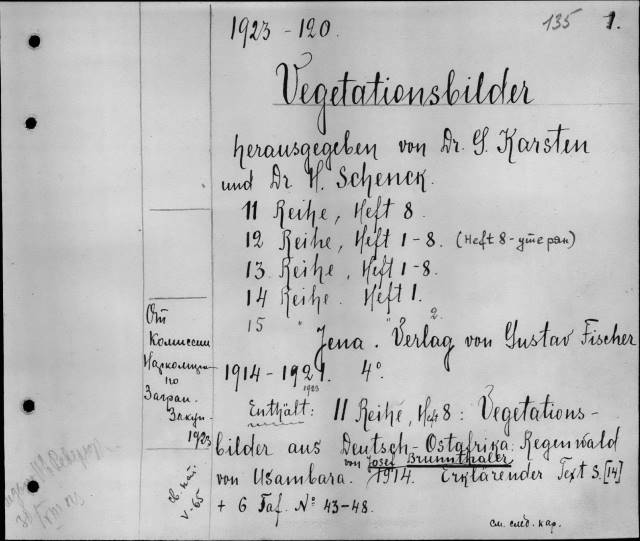 1923-120.
135 1.
Vegetationsbilder
herausgegeben von Dr. G. Karsten
und Dr H. Schenck.
11 Reihe, Heft 8.
12 Reihe, Heft 1-8. (Heft 8-утерян)
13 Reihe, Heft 1-8.
14 Reihe. Heft 1.
15 " " 2.
Jena. Verlag von Gustav Fischer
1914-1921. 4°.
1923
Enthält: 11 Reihe, Heft 8: Vegetations-
bilder aus Deutsch-Ostafrika: Regenwald
von Usambara. von Josef Brunnthaler 1914. Erklärender Text S. [14]
+ 6 Taf. No 43-48.
см. след. кар.
От
Комиссии
по
Загран.
Закуп.
1923
V-65